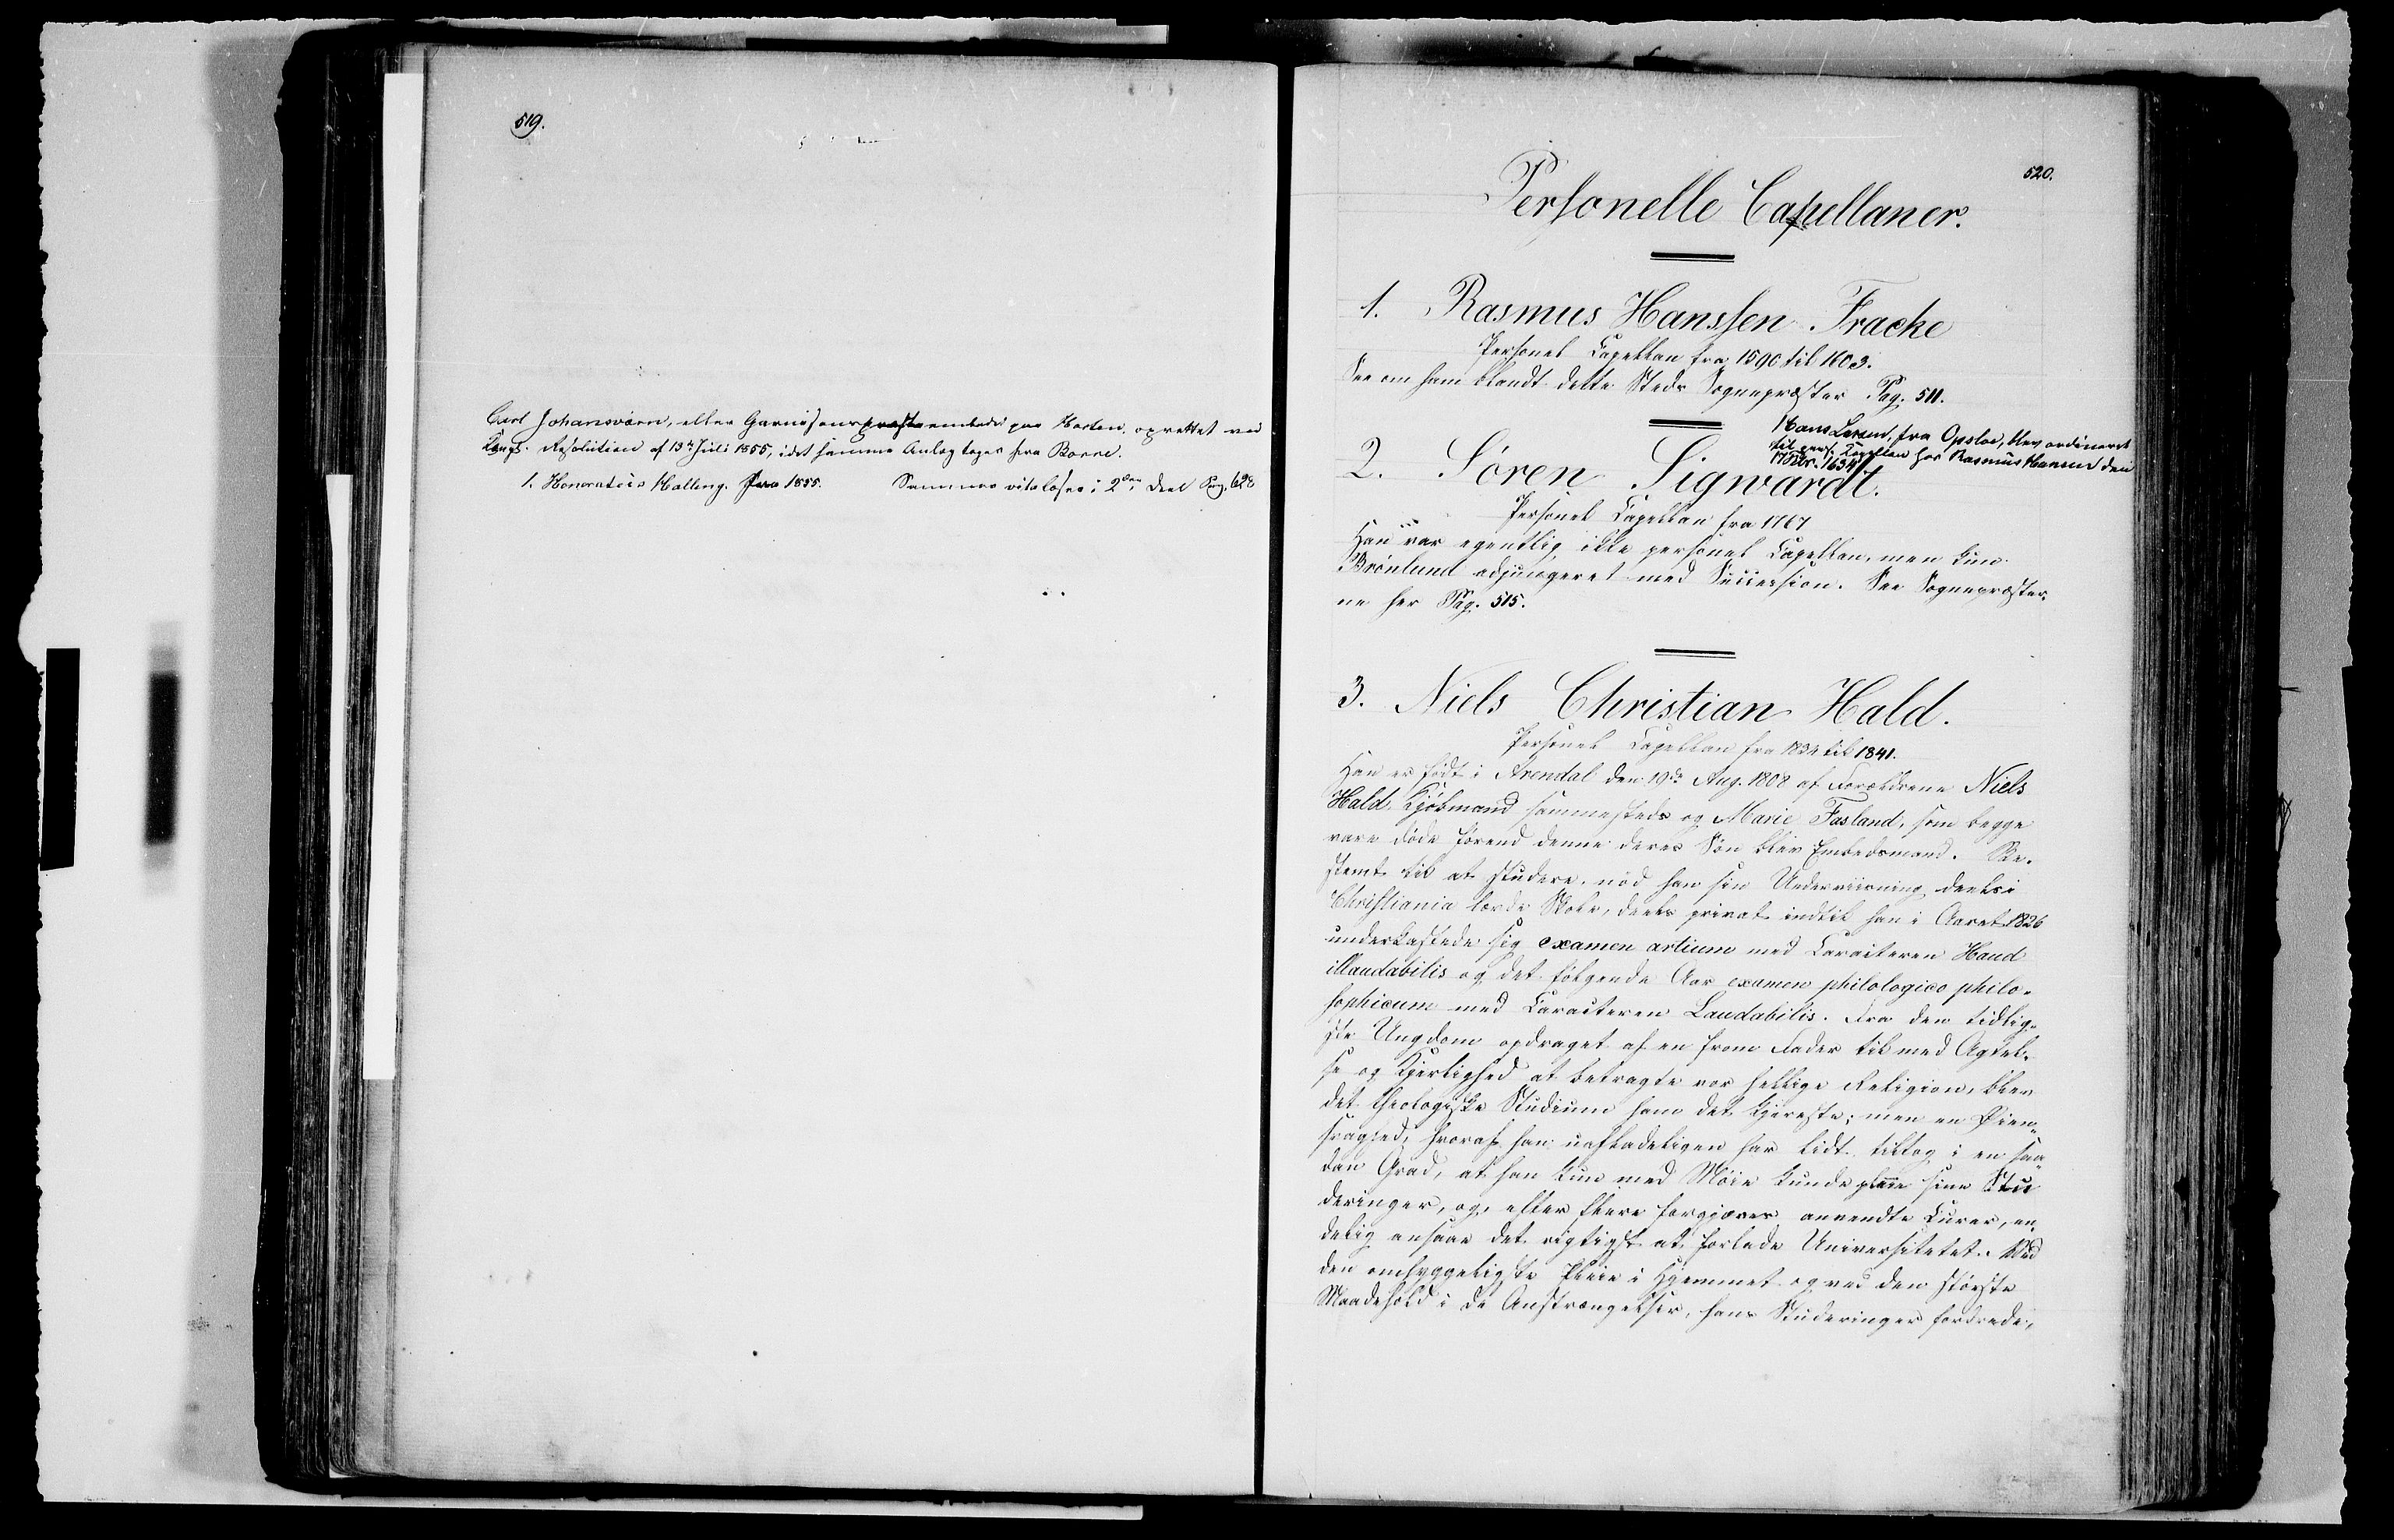 519.
Carl Johansværn, eller Garnisonsprestembedet paa Horten, oprettet ved
Kongl. Resolution af 13de Juli 1855, idet samme Anlæg toges fra Borre.
1. Honoratus Halling. fra 1855. Sammes vita læses i 2den Deel Pag. 628
520.
Personelle Capellaner.
1. Rasmus Hanssen Fracke
Personel Capellan fra 1590 til 1603.
See om ham blandt dette Steds Sognepræster Pag. 511.
Hans , fra Opsloe, blev ordineret
til pers. Capellan hos Rasmus Hansen den
1634.
2. Søren Sigwardt.
Personel Capellan fra 1767
Han var egentlig ikke personel Capellan, men kun
Brønlund adjungeret med Succession. See Sognepræster-
ne her Pag. 515.
3. Niels Christian Hald.
Personel Capellan fra 1834 til 1841.
Han er født i Arendal den 19de Aug. 1808 af Forældrene Niels
Hald, Kjøbmand sammesteds og Marie Fasland, som begge
vare døde førend denne deres Søn blev Embedsmand. Be-
stemt til at studere, nød han sin Underviisning deels i
Christiania lærde Skole, deels privat indtil han i Aaret 1826
underkastede sig examen artium med Caracteren Haud
illaudabilis og det følgende Aar examen philologico philo-
sophicum med Caracteren Laudabilis. Fra den tidlig-
ste Ungdom opdraget af en from Fader til med Agtel-
se og Kjerlighed at betragte vor hellige Religion, blev
det theologiske Studium ham det kjereste; men en Øien-
svaghed, hvoraf han uafladeligen har lidt, tiltog i en saa-
dan Grad, at han kun med Møie kunde pleie sine Stu
deringer, og, efter flere forgjæves anvendte Curer, en-
delig ansaae det rigtigst at forlade Universitetet. Ved
den omhyggeligste Pleie i Hjemmet og ved den største
Maadehold i de Anstrængelser, hans Studeringer fordrede,